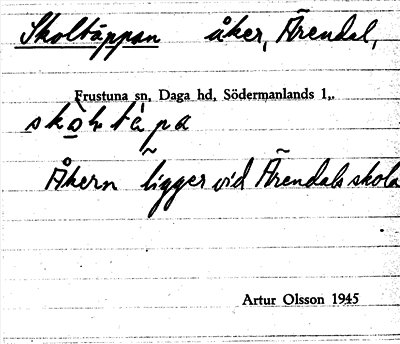 Skoltäppan åker, Ärendal,
Frustuna sn, Daga hd, Södermanlands l,.
Åkern ligger vid Ärendals skola
Artur Olsson 1945